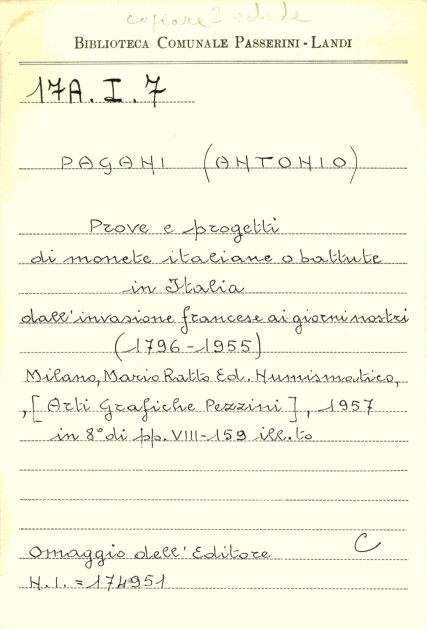 copiare 2 schede
BIBLIOTECA COMUNALE PASSERINI - LANDI
17A. I. 7
PAGANI (ANTONIO)
Prove e progetti
di monete italiane o battute
in Italia
dall'invasione francese ai giorni nostri
(1796-1955)
Milano, Mario Ratto Ed. Numismatico,
, [Arti Grafiche Pezzini], 1957
in 8° di pp. VIII-159 ill.to
Omaggio dell'Editore
C
N.I. = 174951